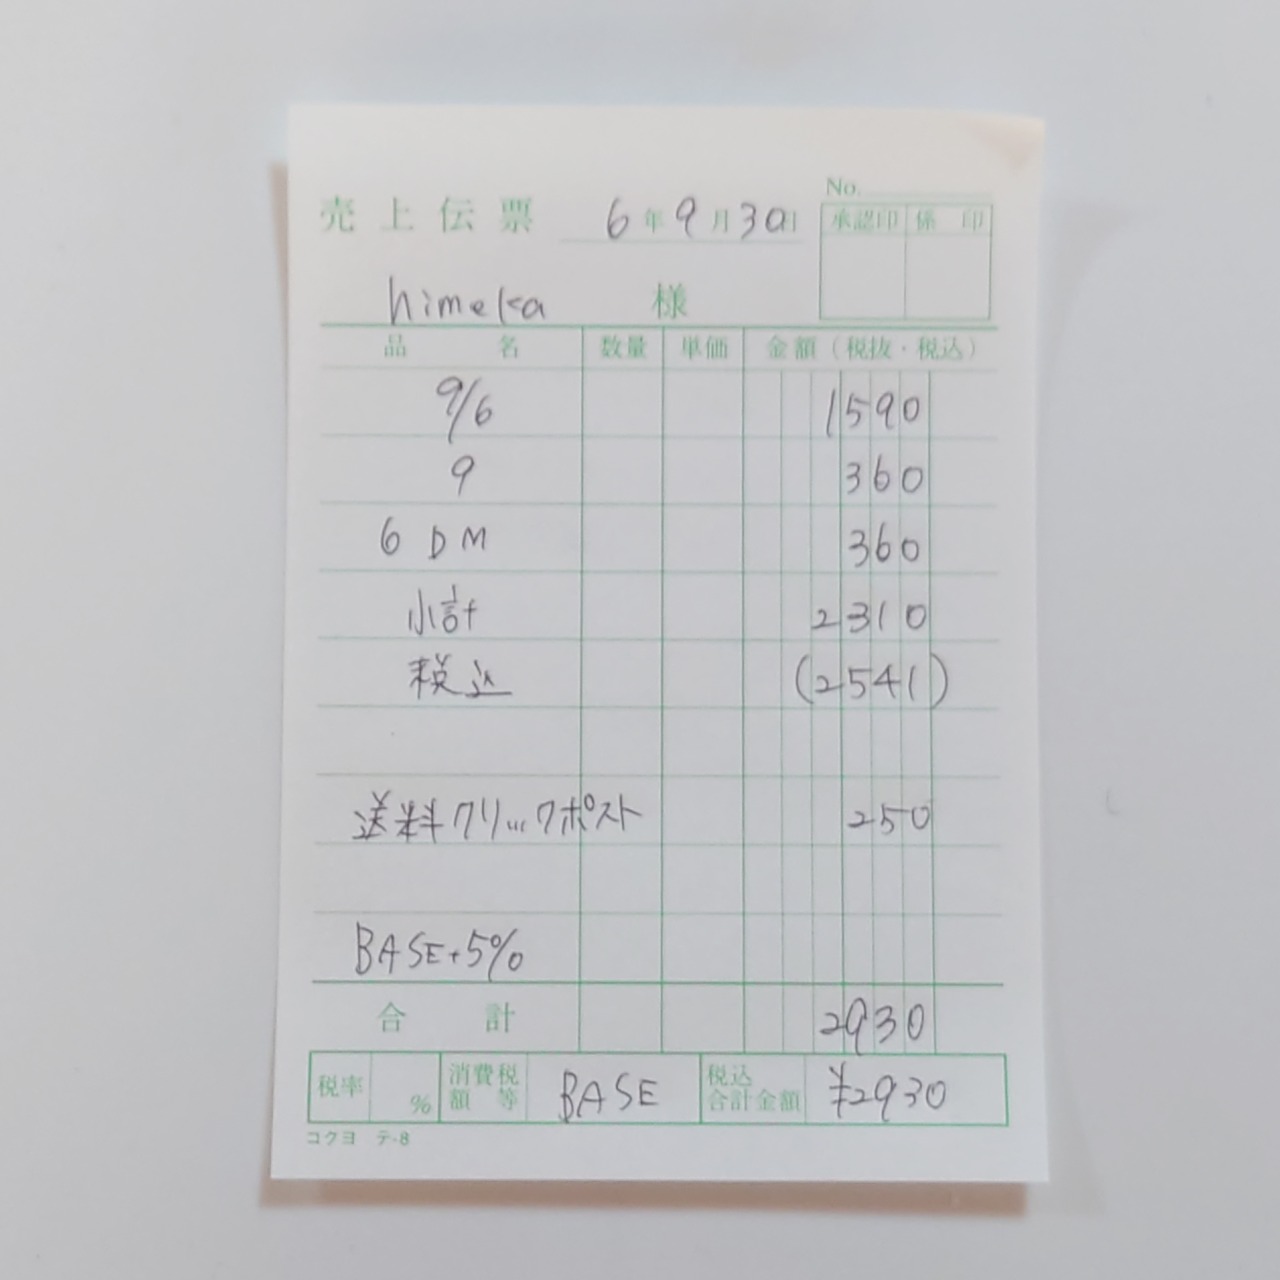 No.
売上伝票 6年9月30日
承認印 係印
himeka 様
品名 数量 単価 金額(税抜・税込)
9/6 1590
9 360
6 DM 360
小計 2310
税込 (2541)
送料クリックポスト 250
BASE+5%
合計 2930
税率 % 消費税額等 BASE 税込合計金額 ¥2930
コクヨ テ-8